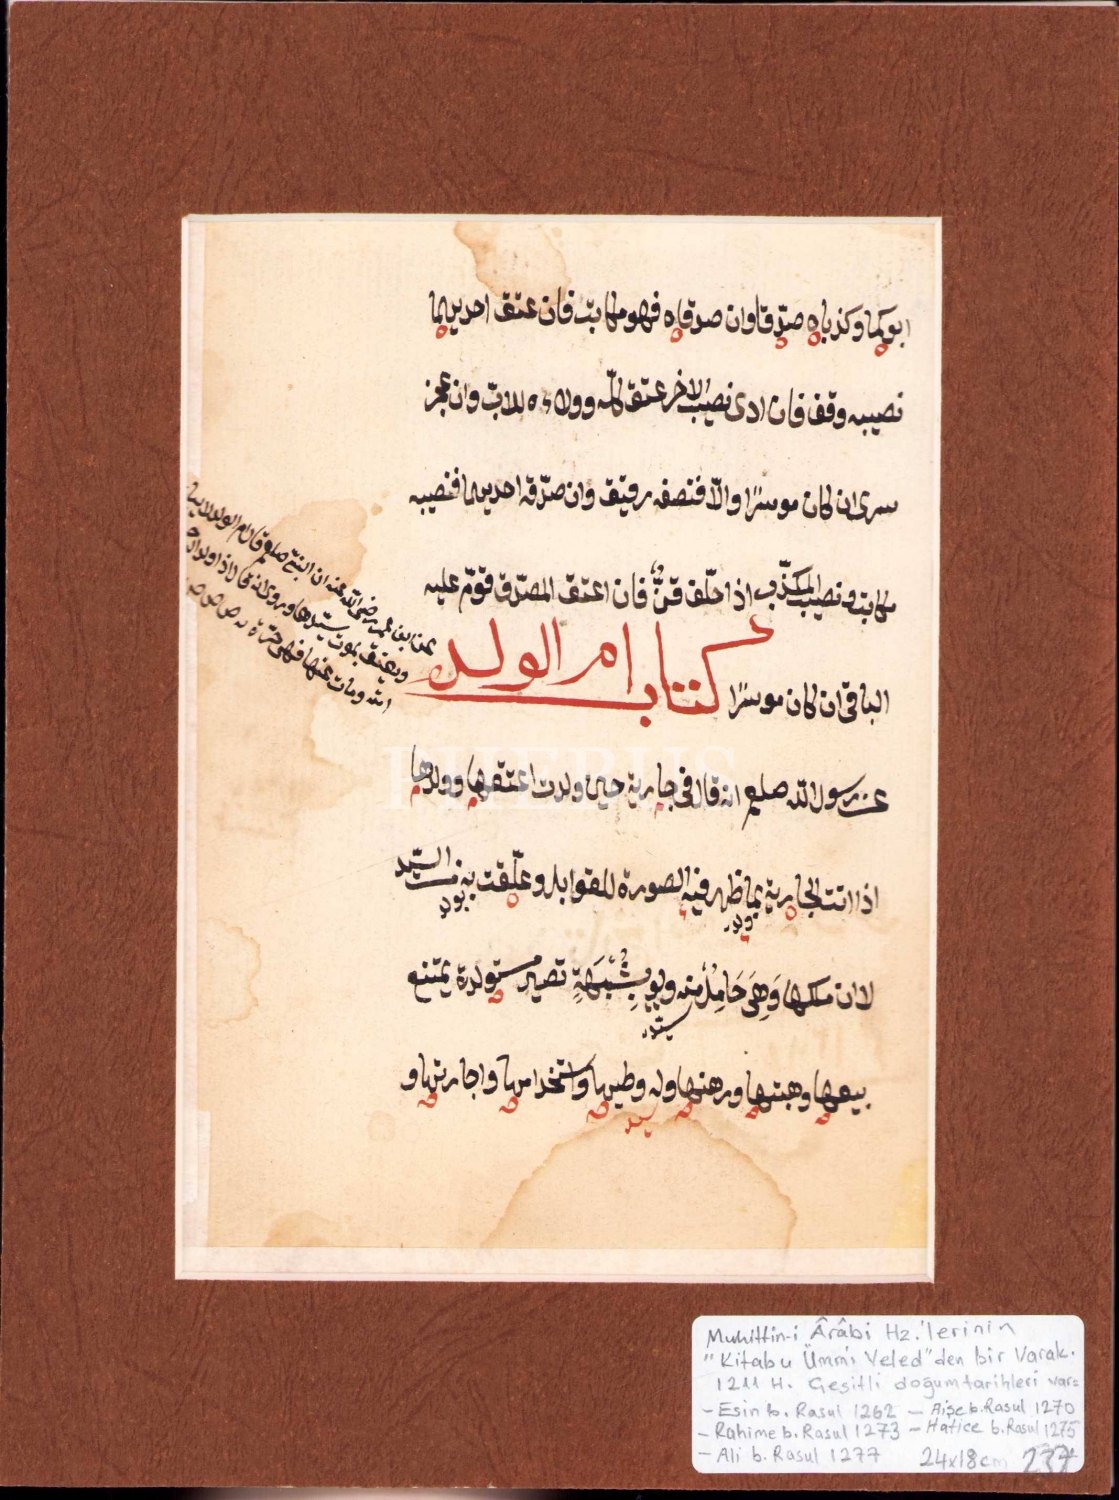 ابوكما وكذباه صدّقا وان صدقاه فهو مكاتب فان عتق احديهما
نصيبه وقف فان ادى نصيب الاخر عتق كلّه وولاءه للاب وان عجز
سرى ان كان موسرًا والّا فنصفه رقيق وان صدّقه احديهما فنصيبه
مكاتب ونصيب المكذّب اذا حلف قنّ فان اعتق المصدّق قوّم عليه
الباقى ان كان موسرًا كتاب ام الولد
عن رسول الله صلعم انه قال فى جارية حين ولدت اعتقها وولدها
اذا اتت الجارية بما ظهر فيه الصورة للقوابل وعلّقت به من السّيد
لا ان ملكها وَهِىَ حَامِلٌ منه ولو بِشُبْهَةٍ تصير مستولدة يمتنع
بيعها وهبتها ورهنها وله وطيها واستخدامها واجارتها و
عن ابن عمر رضى الله عنه ان النبى صلعم قال ام الولد لا
ويعتق بموت سيّدها وروى انه قال اذا ولد
الله ومات عنها فهى حرّة
PHEBUS
Muhittin-i Ârâbi Hz.'lerinin
"Kitabu Ümm'ı Veled"den bir Varak.
1211 H. Çeşitli doğum tarihleri var:
- Esin b. Rasul 1262 - Aişe b. Rasul 1270
- Rahime b. Rasul 1273 - Hatice b. Rasul 1275
- Ali b. Rasul 1277 24x18 cm 237